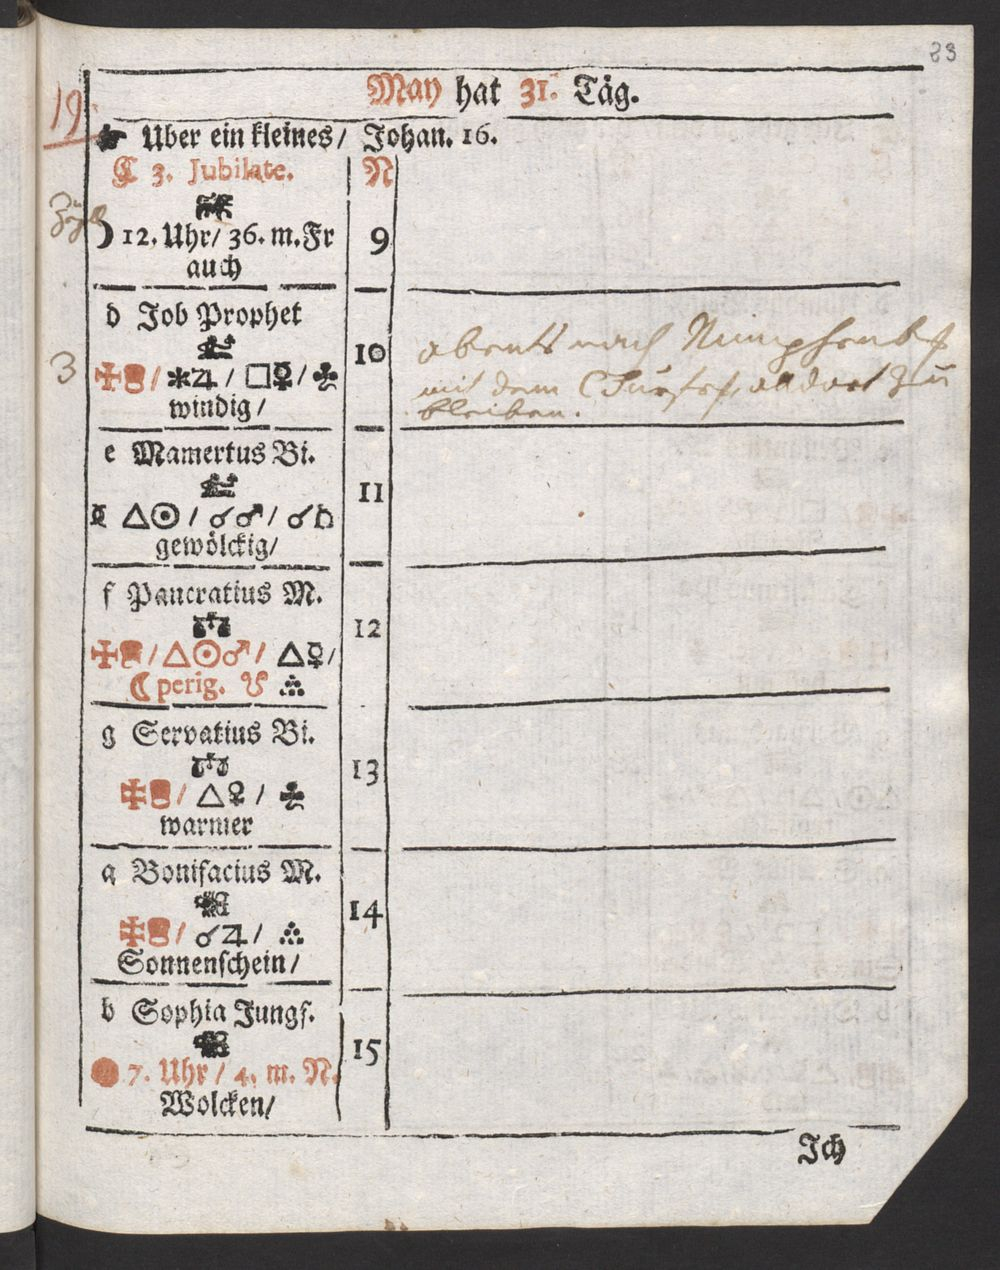 83
May hat 31. Täg.
19
☛ Uber ein kleines/ Johan. 16.
C 3. Jubilate. N
☽ 12. Uhr/ 36. m. Fr 9
auch
d Job Prophet
10
3
/ ⚹♃ / □☿ /
windig /
abents nach Nimphenb
mit dem Churfrst, alldort zu
bleiben.
e Mamertus Bi.
11
△☉ / ☌♂ / ☌
gewölckig/
f Pancratius M.
12
/ △☉♂ / △☿ /
☾ perig. ☋
g Servatius Bi.
13
/ △♀ /
warmer
a Bonifacius M.
14
/ ☌♃ /
Sonnenschein /
b Sophia Jungf.
15
7. Uhr / 4. m. N.
Wolcken/
Ich